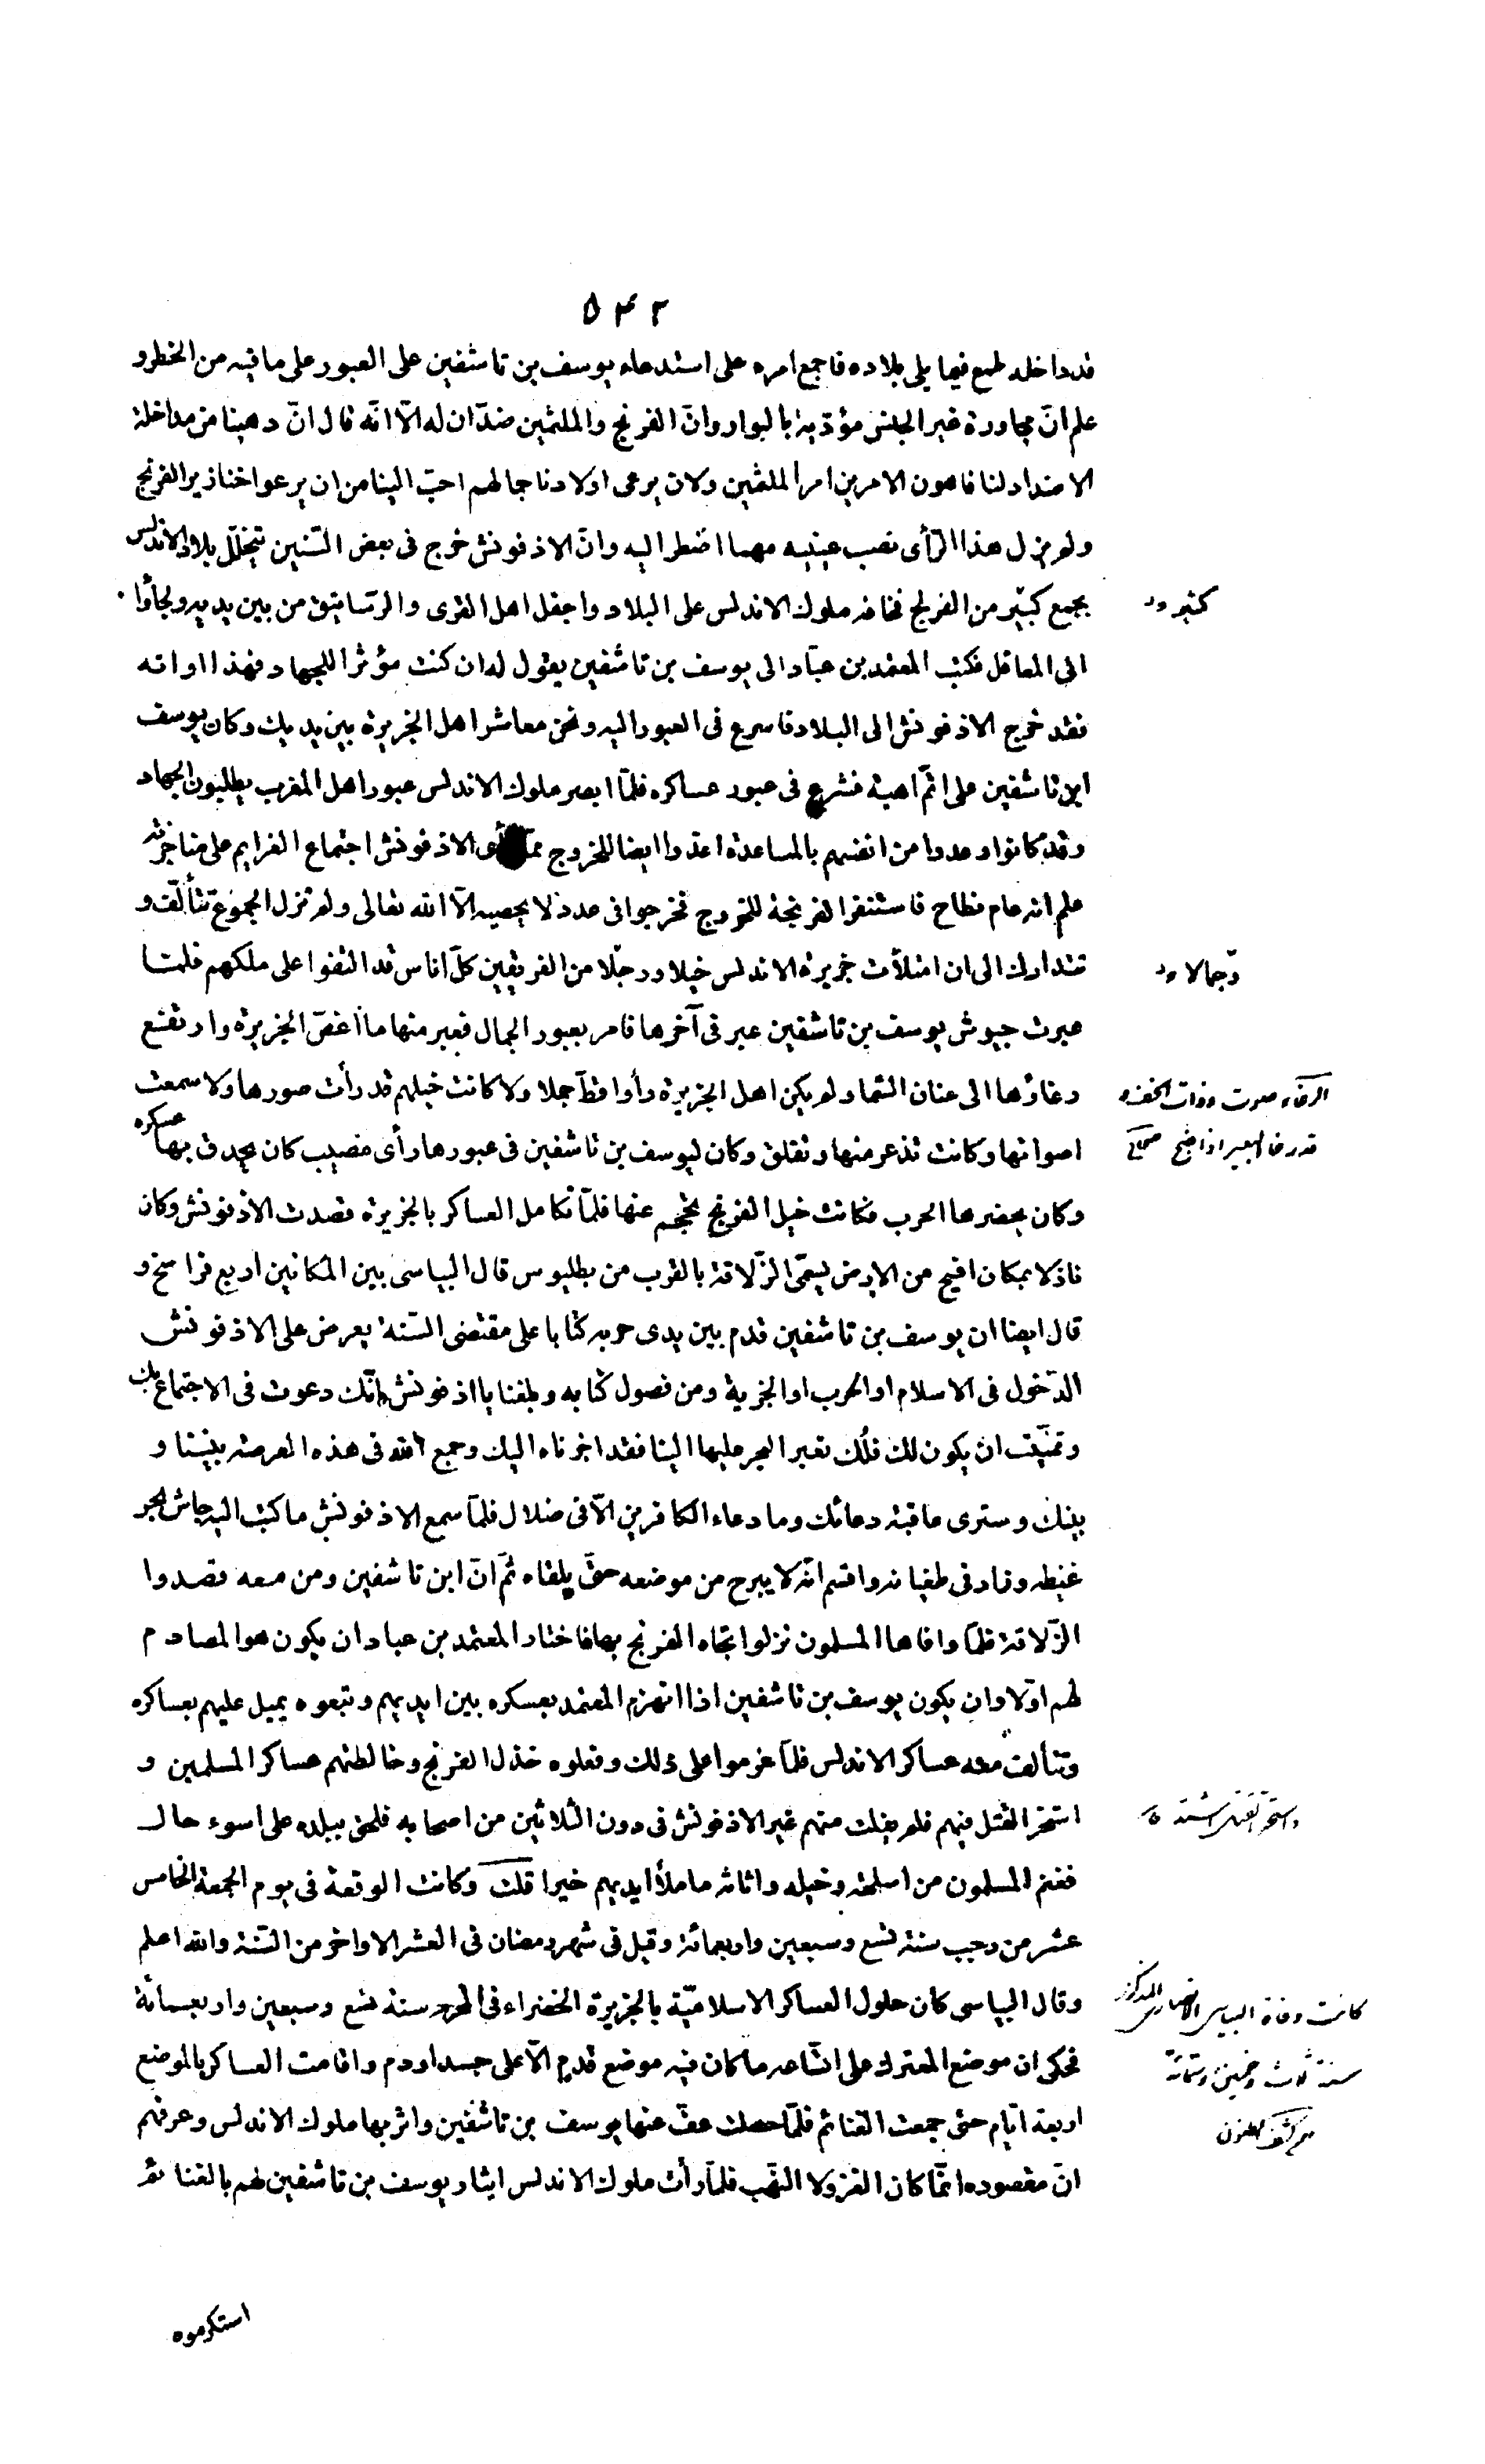 ۵۴۲
قد داخله طمع فيما يلى بلاده فاجمع امره على استدعاء يوسف بن تاشفين على العبور على ما فيه من الخطر و
علم انّ مجاورة غير الجنس مؤذية بالبوار وانّ الفرنج والملثمين ضدّان له الّا انّه قال ان دهينا من مداخلة
الاضداد لنا فاهون الامرين امر الملثمين ولان يرعى اولادنا جمالهم احبّ الينا من ان يرعوا خنازير الفرنج
ولم يزل هذا الرّأى نصب عينيه مهما اضطر اليه وانّ الاذفونش خرج فى بعض السّنين يتخلّل بلاد الاندلس
بجمع كبير من الفرنج فخافه ملوك الاندلس على البلاد واجفل اهل القرى والرّساتيق من بين يديه ولجأوا
الى المعاقل فكتب المعتمد بن عبّاد الى يوسف بن تاشفين يقول له ان كنت مؤثرا للجهاد فهذا اوانه
فقد خرج الاذفونش الى البلاد فاسرع فى العبور اليه ونحن معاشر اهل الجزيرة بين يديك وكان يوسف
ابن تاشفين على اتمّ اهبة فشرع فى عبور عساكره فلمّا ابصر ملوك الاندلس عبور اهل المغرب يطلبون الجهاد
وقد كانوا وعدوا من انفسهم بالمساعدة اعدّوا ايضا للخروج الاذفونش اجتماع الغرايم على مناجزته
علم انه عام نطاح فاستنفر الفرنجة للخروج فخرجوا فى عدد لا يحصيه الّا الله تعالى ولم تزل الجموع تتألّف و
تتدارك الى ان امتلأت جزيرة الاندلس خيلا ورجلا من الفريقين كلّ اناس قد التفوا على ملكهم فلمّا
عبرت جيوش يوسف بن تاشفين عبر فى آخرها فامر بعبور الجمال فعبر منها ما اغصّ الجزيرة وارتفع
رغاؤها الى عنان السّماء ولم يكن اهل الجزيرة رأوا قطّ جملا ولا كانت خيلهم قد رأت صورها ولا سمعت
اصواتها وكانت تذعر منها وتقلق وكان ليوسف بن تاشفين فى عبورها رأى مصيب كان يحدق بها عسكره
وكان يحضرها الحرب فكانت خيل الفرنج تحجم عنها فلمّا تكامل العساكر بالجزيرة قصدت الاذفونش وكان
نازلا بمكان افيح من الارض يسمّى الزّلاقة بالقرب من بطليوس قال البياسى بين المكانين اربع فراسخ و
قال ايضا ان يوسف بن تاشفين قدم بين يدى حربه كتابا على مقتضى السّنة يعرض على الاذفونش
الدّخول فى الاسلام او الحرب او الجزية ومن فصول كتابه وبلغنا يا اذفونش انّك دعوت فى الاجتماع بك
وتمنّيت ان يكون لك فلك تعبر البحر عليها الينا فقد اجزناه اليك وجمع الله فى هذه العرصة بيننا و
بينك وسترى عاقبة دعائك وما دعاء الكافرين الّا فى ضلال فلمّا سمع الاذفونش ما كتب اليه جاش بحر
غيظه وزاد فى طغيانه واقسم انّه لا يبرح من موضعه حتّى يلقاه ثمّ انّ ابن تاشفين ومن معه قصدوا
الزّلاقة فلمّا وافاها المسلمون نزلوا تجاه الفرنج بها فاختار المعتمد بن عباد ان يكون هو المصادم
لهم اوّلا وان يكون يوسف بن تاشفين اذا انهزم المعتمد بعسكره بين ايديهم وتبعوه يميل عليهم بعساكره
وتتألف معه عساكر الاندلس فلمّا عزموا على ذلك وفعلوه خذل الفرنج وخالطتهم عساكر المسلمين و
استحر القتل فيهم فلم يفلت منهم غير الاذفونش فى دون الثلاثين من اصحابه فلحق ببلده على اسوء حال
فغنم المسلمون من اسلحته وخيله واثاثه ما ملأ ايديهم خيرا قلت وكانت الوقعة فى يوم الجمعة الخامس
عشر من رجب سنة تسع وسبعين واربعمائة وقيل فى شهر رمضان فى العشر الاواخر من السّنة والله اعلم
وقال البياسى كان حلول العساكر الاسلاميّة بالجزيرة الخضراء فى المحرم سنة تسع وسبعين واربعمائة
فحكى ان موضع المعترك على اتّساعه ما كان فيه موضع قدم الّا على جسد او دم واقامت العساكر بالموضع
اربعة ايّام حتّى جمعت الغنائم فلمّا حصلت عفّ عنها يوسف بن تاشفين واثر بها ملوك الاندلس وعرفهم
انّ مقصوده انّما كان الغزو لا النّهب فلمّا رأت ملوك الاندلس ايثار يوسف بن تاشفين لهم بالغنائم
استكرموه
كثير
وجمالا
الرغاء صوت ذوات الخف و
قد رغا البعير اذا ضج صحاح
واستحر القتل اشتد
كانت وفاة البياسى الانصارى المذكور
سنة ثلاث وخمسين وستمائة
كشف الظنون